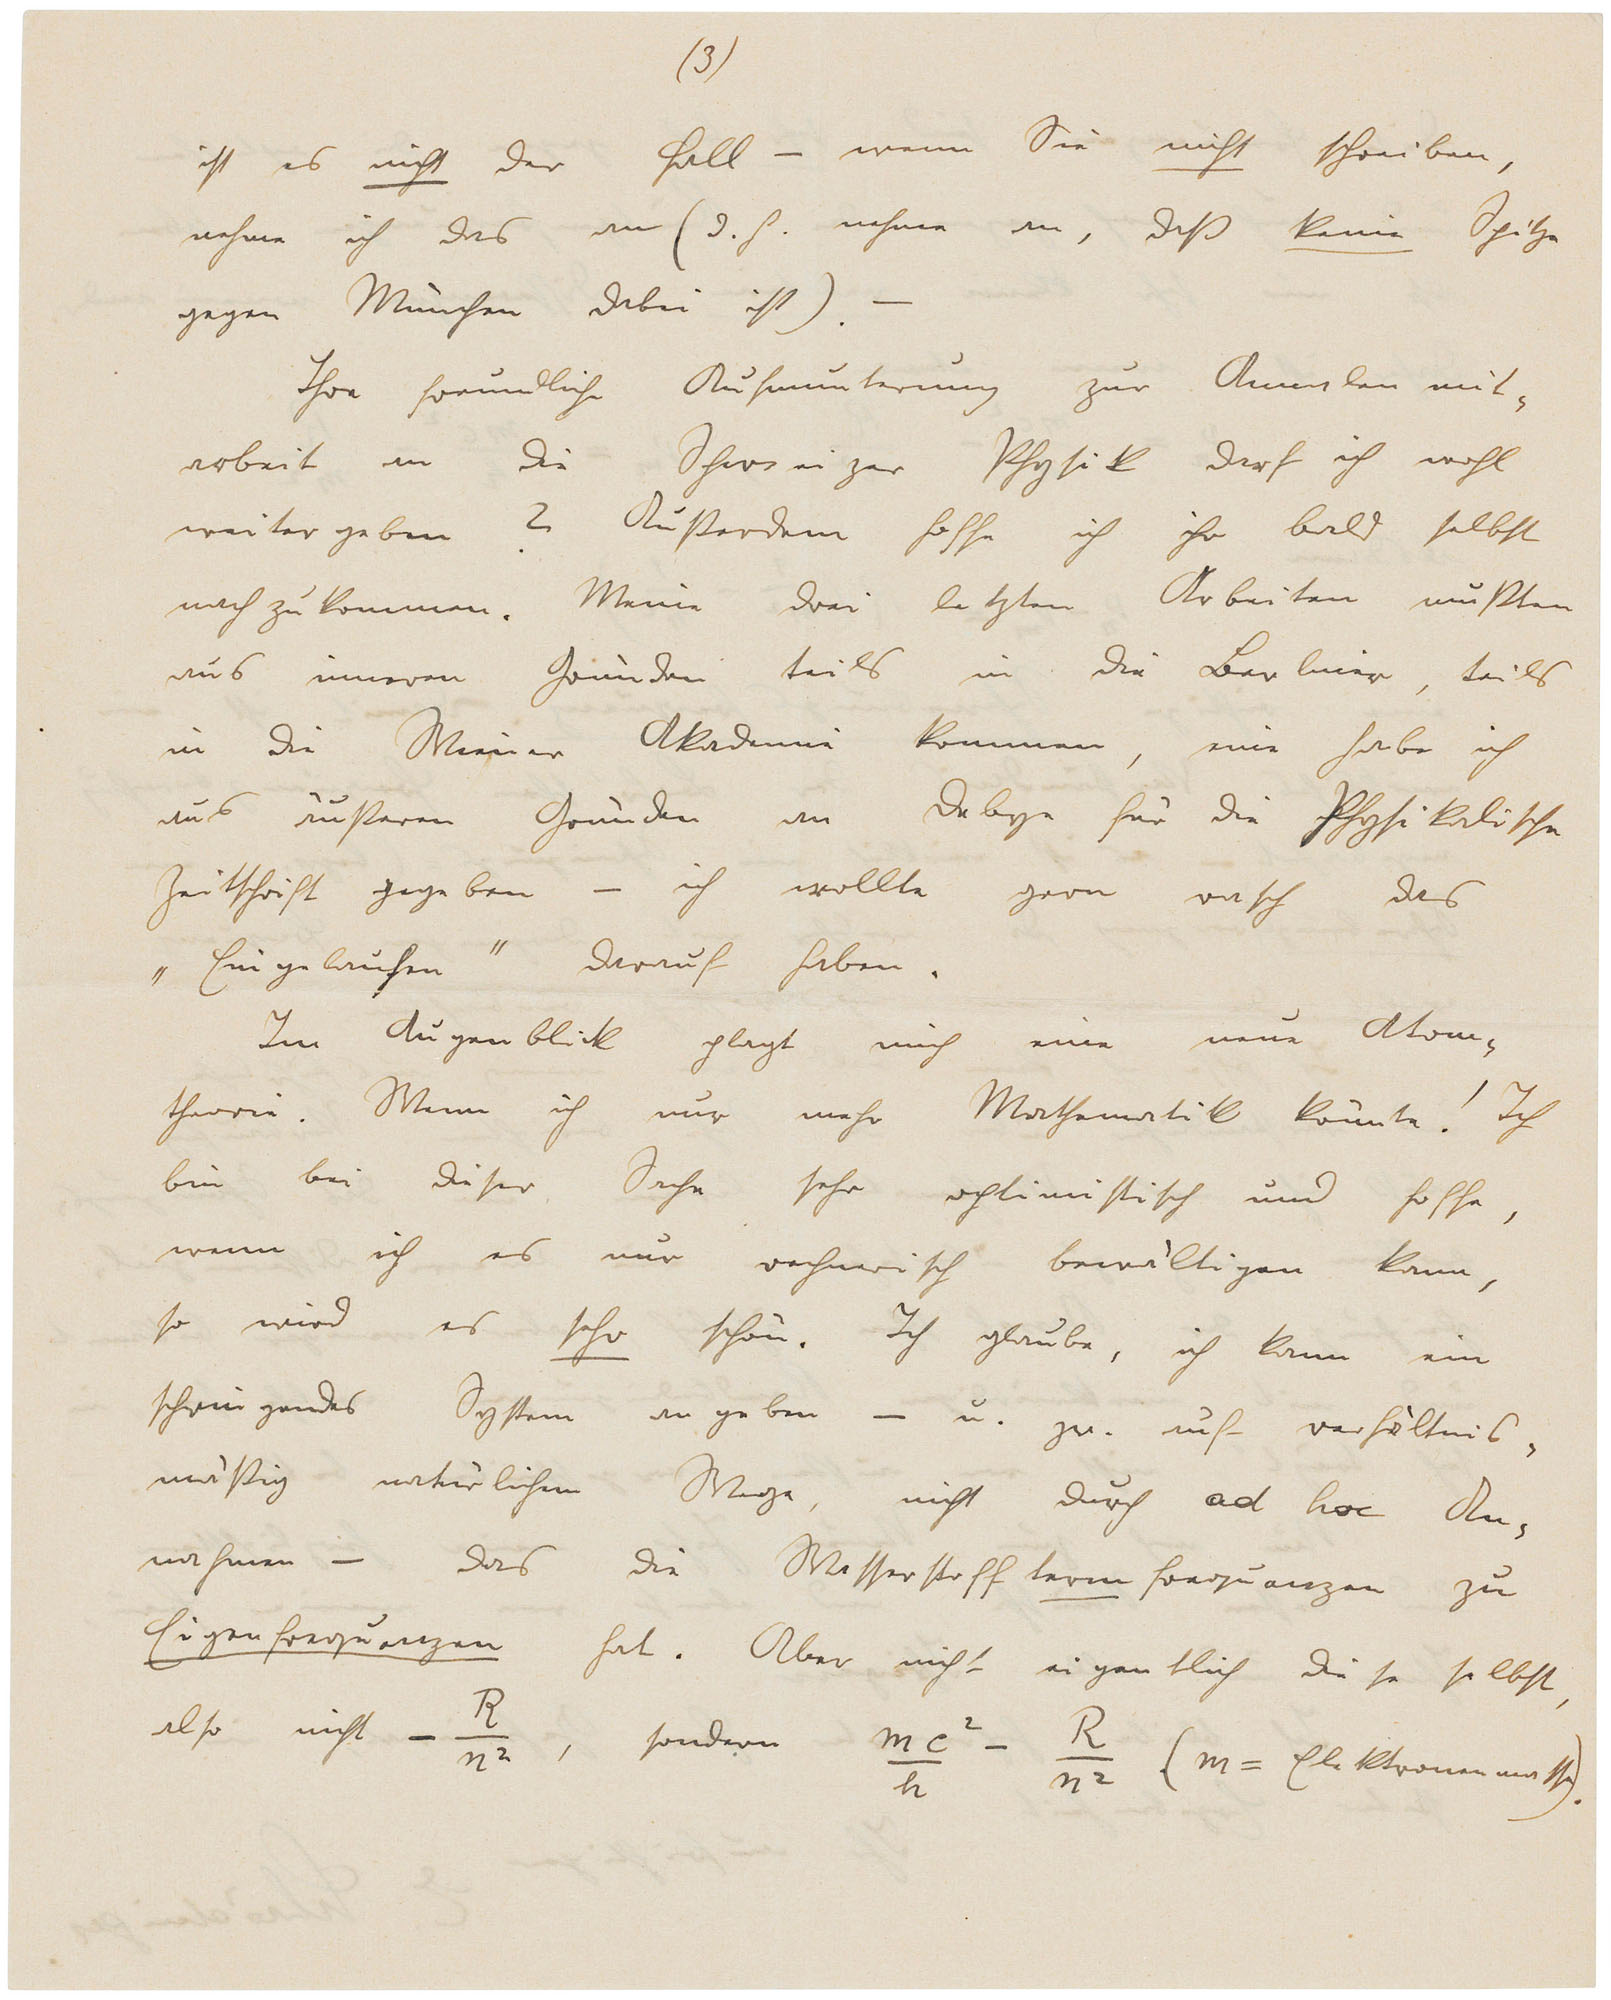 (3)
ist es nicht der Fall – wenn Sie nicht schreiben,
nehme ich das an (d. h. nehme an, daß keine Spitze
gegen München dabei ist). –
Ihre freundliche Aufmunterung zur Annalenmit=
arbeit an die Schweizer Physik darf ich wohl
weitergeben? Außerdem hoffe ich ihr bald selbst
nachzukommen. Meine drei letzten Arbeiten mußten
aus inneren Gründen teils in die Berliner, teils
in die Wiener Akademie kommen, eine habe ich
aus äußeren Gründen an Debye für die Physikalische
Zeitschrift gegeben – ich wollte gern rasch das
„Eingelaufen" darauf haben.
Im Augenblick plagt mich eine neue Atom=
theorie. Wenn ich nur mehr Mathematik könnte! Ich
bin bei dieser Sache sehr optimistisch und hoffe,
wenn ich es nur rechnerisch bewältigen kann,
so wird es sehr schön. Ich glaube, ich kann ein
schwingendes System angeben – u. zw. auf verhältnis=
mäßig natürlichem Wege, nicht durch ad hoc An=
nahmen – das die Wasserstofftermfrequenzen zu
Eigenfrequenzen hat. Aber nicht eigentlich diese selbst,
also nicht – R/n², sondern mc²/h – R/n² (m = Elektronenmasse).